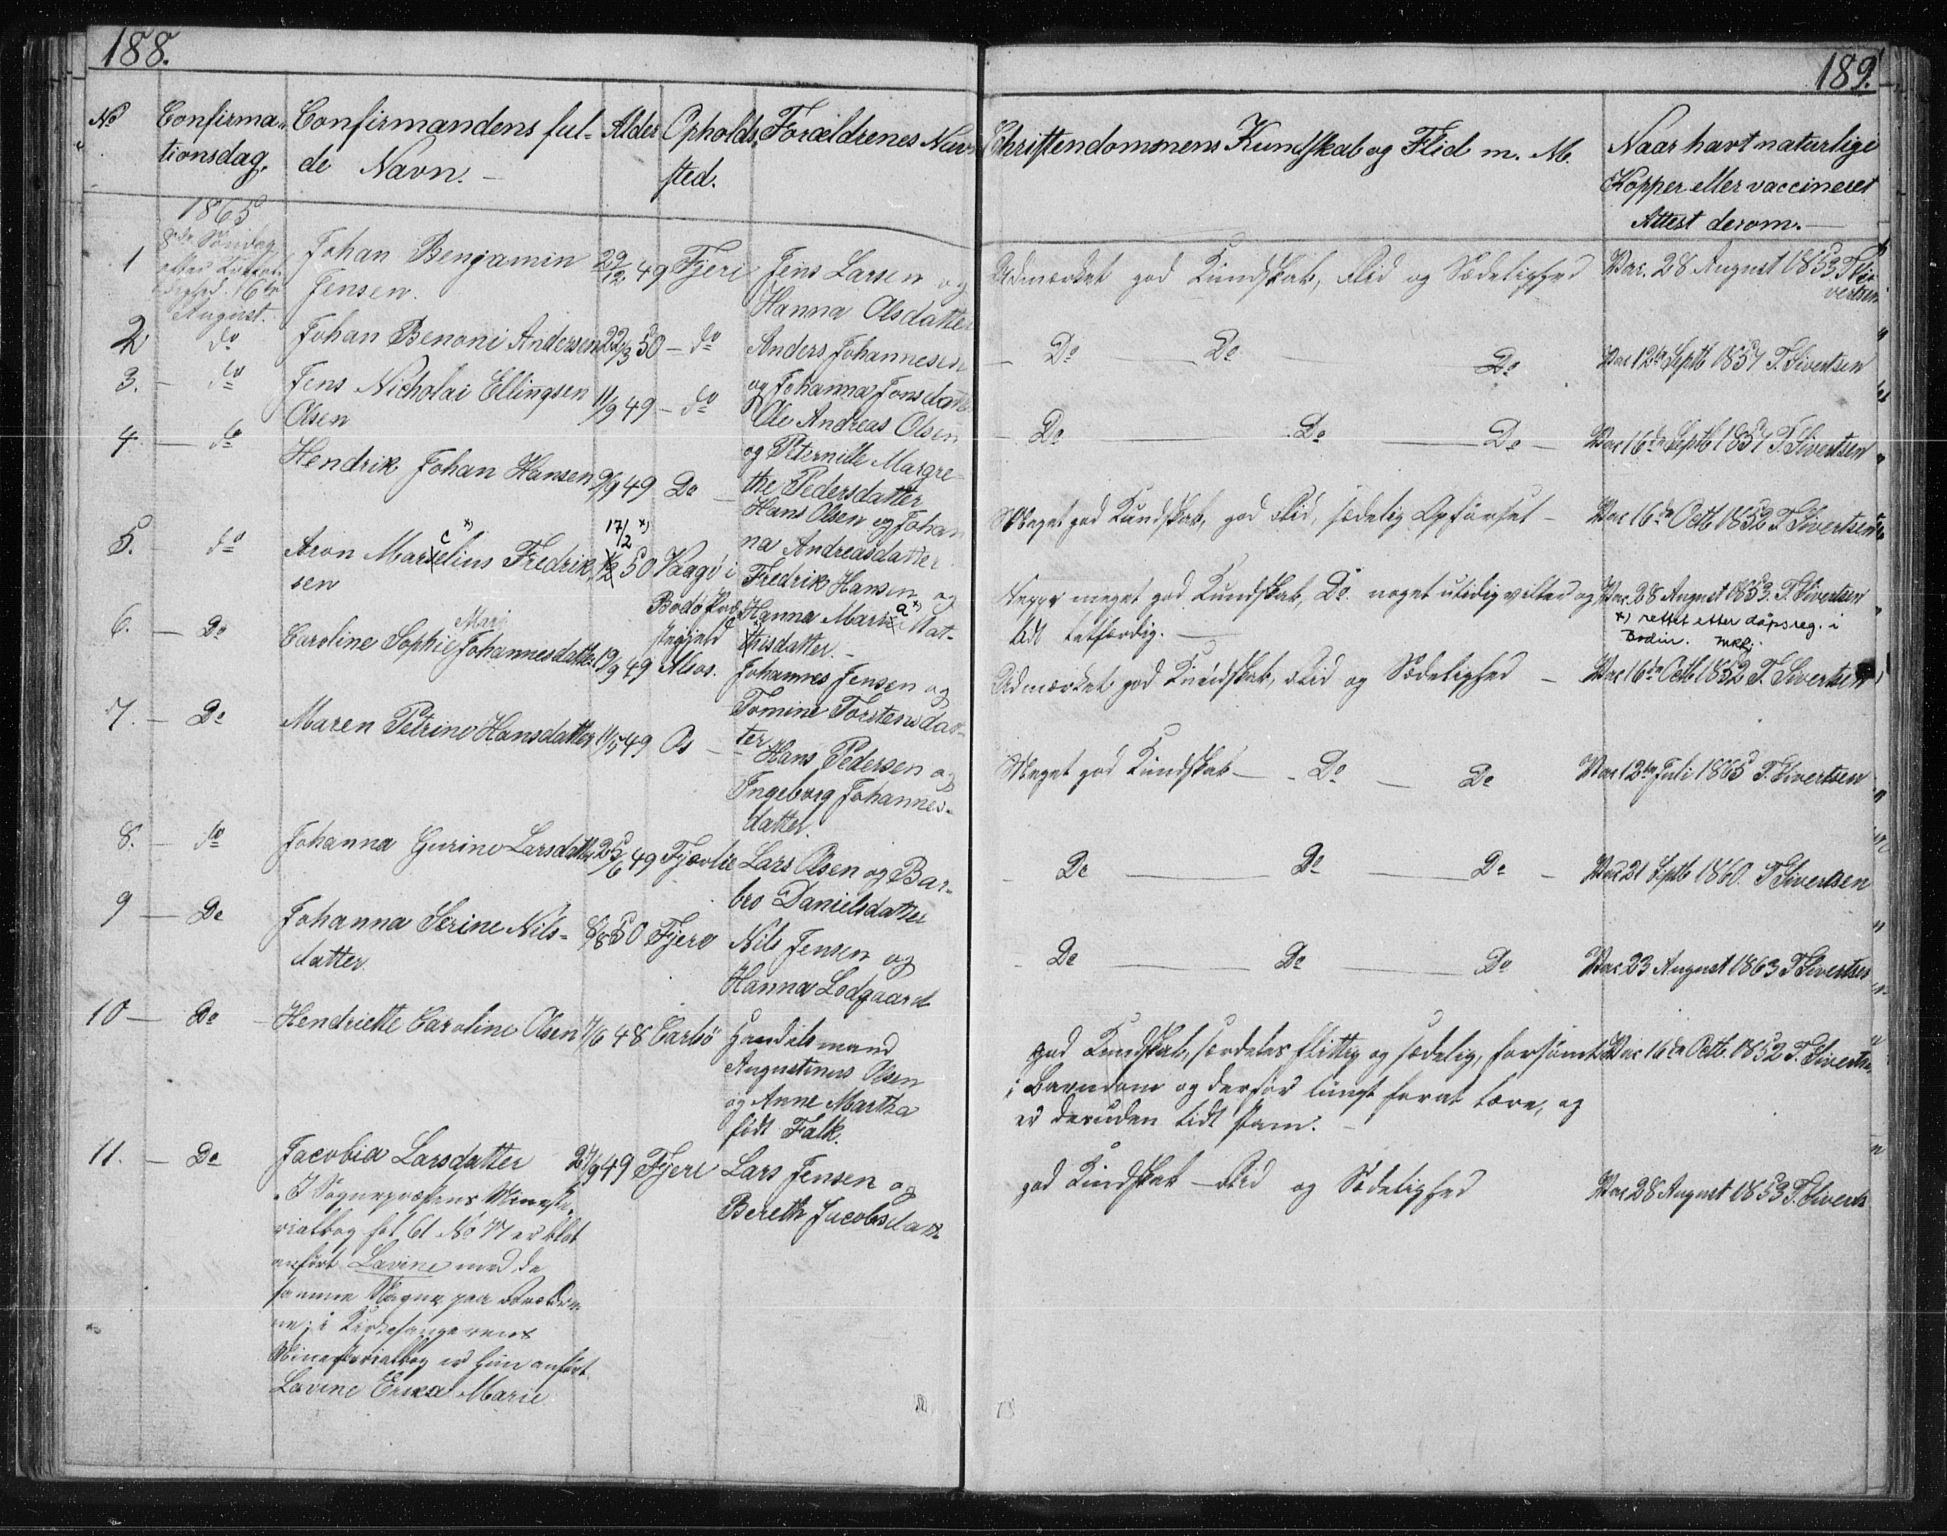 188.
No
Confirma-
tionsdag.
Confirmandens ful-
de Navn. -
Alder
Opholds-
sted.
Forældrenes Navn
1865
8de Søndag
efter
6te
August.
1
Johan Benjamin
Jensen.
29/12 49
Fjeri
Jens Larsen og
Hanna Olsdatter
2
do
Johan Benoni Andersen
22/3 50 - do
Anders Johannesen
og Johanna Jonsdatter
3. - do
Jens Nicholai Ellingsen
Olsen
11/9 49 - do
Ole Andreas Olsen
og Peternille Margre-
the Pedersdatter
4 - do
Hendrik Johan Hansen
9/9 49 Do -
Hans Olsen og Johan
na Andreasdatter
5. - do
Aron Marcelius Fredrik
sen
17/2 x)
50
Vaagø i
Bodø
Fredrik Hansen og
Hanna Maria Kat-
risdatter. -
6. - Do
Mari
Caroline Sophie Johannesdatter
19/9 49 Alsos.
Johannes Jensen og
Tomine Torstensdat-
ter
7. - Do
Maren Petrine Hansdatter
11/5 49 Os -
Hans Pedersen og
Ingeborg Johannes-
datter.
8. - do
Johanna Gurine Larsdatter
25/6 49 Fjærlie
Lars Olsen og Bar-
bro Danielsdatter
9 - Do
Johanna Serine Nils-
datter
8/8 50 Fjere
Nils Jensen og
Hanna Lodgaard
10 - Do -
Hendriette Caroline Olsen
7/6 48
Handelsmand
Augustinus Olsen
og Anne Martha
født Falk.
11. - Do
Jacobia Larsdatter
27/9 49 Fjere
Lars Jensen og
Bereth Jacobsdatt
I Sognepræstens Ministe-
rialbog fol 61 No 77 er blot
anført Lavine med de
samme Navne paa Foræld
ne; i Kirkesangerens
Ministerialbog er hun anført
Lavine Erika Marie
189.
Christendommens Kundskab og Flid m. M.
Naar havt naturlige
Kopper eller vaccineret
Attest derom. -
Udmærket god Kundskab, Flid og Sædelighed
Vac. 28 August 1853 T Si-
vertsen
- Do - Do - Do
Vac 12te Septb 1857 T. Sivertsen
- Do - Do - Do -
Vac 16de Septb 1857 T. Sivertsen
Meget god Kundskab, god Flid, sædelig Opførsel -
Vac 16de Octb 1852 T Sivertsen
meget god Kundskab, Do. noget utidig og
lidt letfærdig. -
Vac 28 August 1853. T. Sivertsen
x) rettet etter dåpsreg. i
Bodin.
Udmærket god Kundskab, Flid og Sædelighed -
Vac 16de Octb 1852 T. Sivertsen
Meget god Kundskab - Do - Do
Vac 12te Juli 1865 T. Sivertsen
- Do - Do - Do -
Vac 21 Septb 1860. T Sivertsen
- Do - Do - Do
Vac 23 August 1863 T Sivertsen
god Kundskab, særdeles flittig og sædelig, forsømt
i Barndom og derfor tungt for at lære, og
er desuden lidt stam. -
Vac 16de Octb. 1852 T. Sivertsen
god Kundskab - Flid og Sædelighed
Vac 28 August 1853 T. Siverts